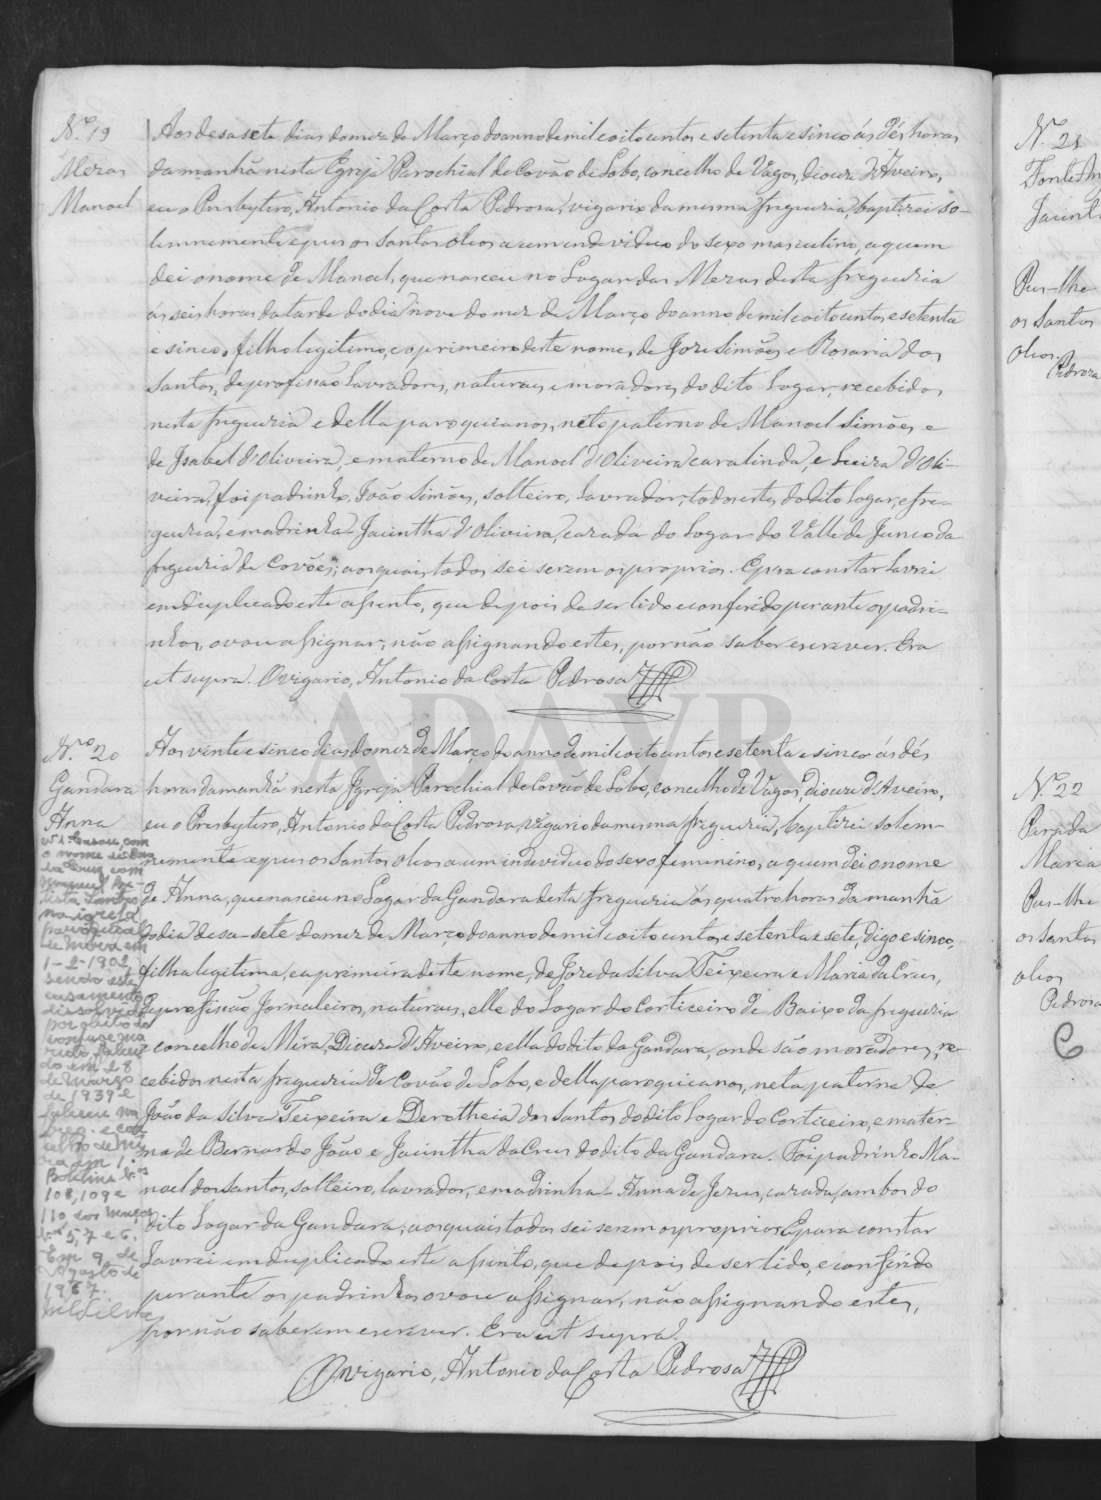 Nº 19
Mezas
Manoel
Aos desasete dias do mez de Março do anno de mil e oito centos e setenta e sinco ás dés horas
da manhã nesta Egreja Parochial de Covão de Lobo, concelho de Vagos, diocese d'Aveiro,
eu o Presbytero, Antonio da Costa Pedrosa, vigario da mesma freguezia, baptizei so-
lemnemente e pus os Santos oleos a um individuo do sexo masculino, a quem
dei o nome de Manoel, que nasceu no Logar das Mezas desta freguezia
ás seis horas da tarde do dia nove do mez de Março do anno de mil e oito centos e setenta
e sinco, filho legitimo, e o primeiro deste nome, de Jose Simões e Rosaria dos
Santos, de profissão lavradores, naturaes e moradores do dito Logar, recebidos
nesta freguezia e della paroquianos, neto paterno de Manoel Simões e
de Isabel d'Oliveira, e materno de Manoel d'Oliveira caralinda, e Luiza d'Oli-
veira, foi padrinho João Simões, solteiro, lavrador, todos estes do dito logar, e fre-
guezia, e madrinha Jacintha d'Oliveira, casada do Logar do Valle de Junco da
freguezia de Covões, aos quaes todos sei serem os proprios. E para constar lavrei
em duplicado este assento, que depois de ser lido e conferido perante os padri-
nhos, o vou assignar, não assignando estes, por não saber escrever. Era
ut supra. O vigario, Antonio da Costa Pedrosa
ADAVR
Nro 20
Gandara
Anna
Aos vinte e sinco dias do mez de Março do anno de mil e oito centos e setenta e sinco ás dés
horas da manhã nesta Igreja Parochial de Covão de Lobo, concelho de Vagos, diocese d'Aveiro,
eu o Presbytero, Antonio da Costa Pedrosa, vigario da mesma freguezia, baptizei solem-
nemente e pus os Santos oleos a um individuo do sexo femenino, a quem dei o nome
de Anna, que nasceu no Logar da Gandara desta freguezia ás quatro horas da manhã
do dia desa-sete do mez de Março do anno de mil e oito centos e setenta e sete, digo e sinco,
filha legitima, e a primeira deste nome, de Jose da Silva Teixeira e Maria da Crus,
de profissão Jornaleiros, naturaes, elle do Logar do Corticeiro de Baixo da freguezia
e concelho de Mira, Diocese d'Aveiro, e ella do dito da Gandara, onde são moradores, re-
cebidos nesta freguezia de Covão de Lobo, e della paroquianos, neta paterna de
João da Silva Teixeira e Dorotheia dos Santos do dito Logar do Corticeiro, e mater-
na de Bernardo João e Jacintha da Crus do dito da Gandara. Foi padrinho Ma-
noel dos Santos, solteiro, lavrador, e madrinha Anna de Jesus, casada, ambos do
dito Logar da Gandara, aos quais todos sei serem os proprios. E para constar
lavrei em duplicado este assento, que depois de ser lido, e conferido
perante os padrinhos, o vou assignar, não assignando estes,
por não saberem escrever. Era ut supra.
O vigario, Antonio da Costa Pedrosa
Nº 1 Casou, com
o nome de Ana
da Cruz com
Manuel
Santos
na igreja
paroquial
de Mira em
1-2-1902,
sendo este
casamento
dissolvido
por óbito do
conjuge ma
rido, faleci
do em 28
de março
de 1939 e
faleceu na
freg. e con
celho de Mi
ra em
Boletins nos
108, 109 e
110 dos maços
nos 5, 7 e 6.
Em 9 de
Agosto de
1967.
Nº 21
Jacint
Pus-lhe
os Santos
oleos.
Pedrosa
Nº 22
Parada
Maria
Pus-lhe
os Santos
oleos
Pedrosa